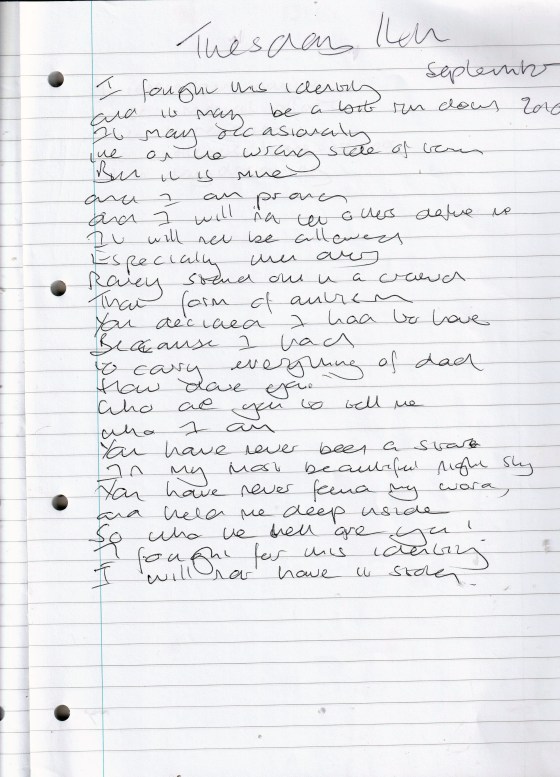 Tuesday 11th
September
I fought this identity
and it may be a bit run down 2010
It may occasionally
be on the wrong side of town
But it is mine
and I am proud
and I will not let others define me
It will not be allowed
Especially when they
Rarely stand out in a crowd
That form of autism
You decided I had to have
Because I had
to carry everything of dad
How dare you
Who are you to tell me
who I am
You have never been a star
In my most beautiful night sky
You have never found my words,
and held me deep inside
So who the hell are you!
I fought for this identity
I will not have it stolen.